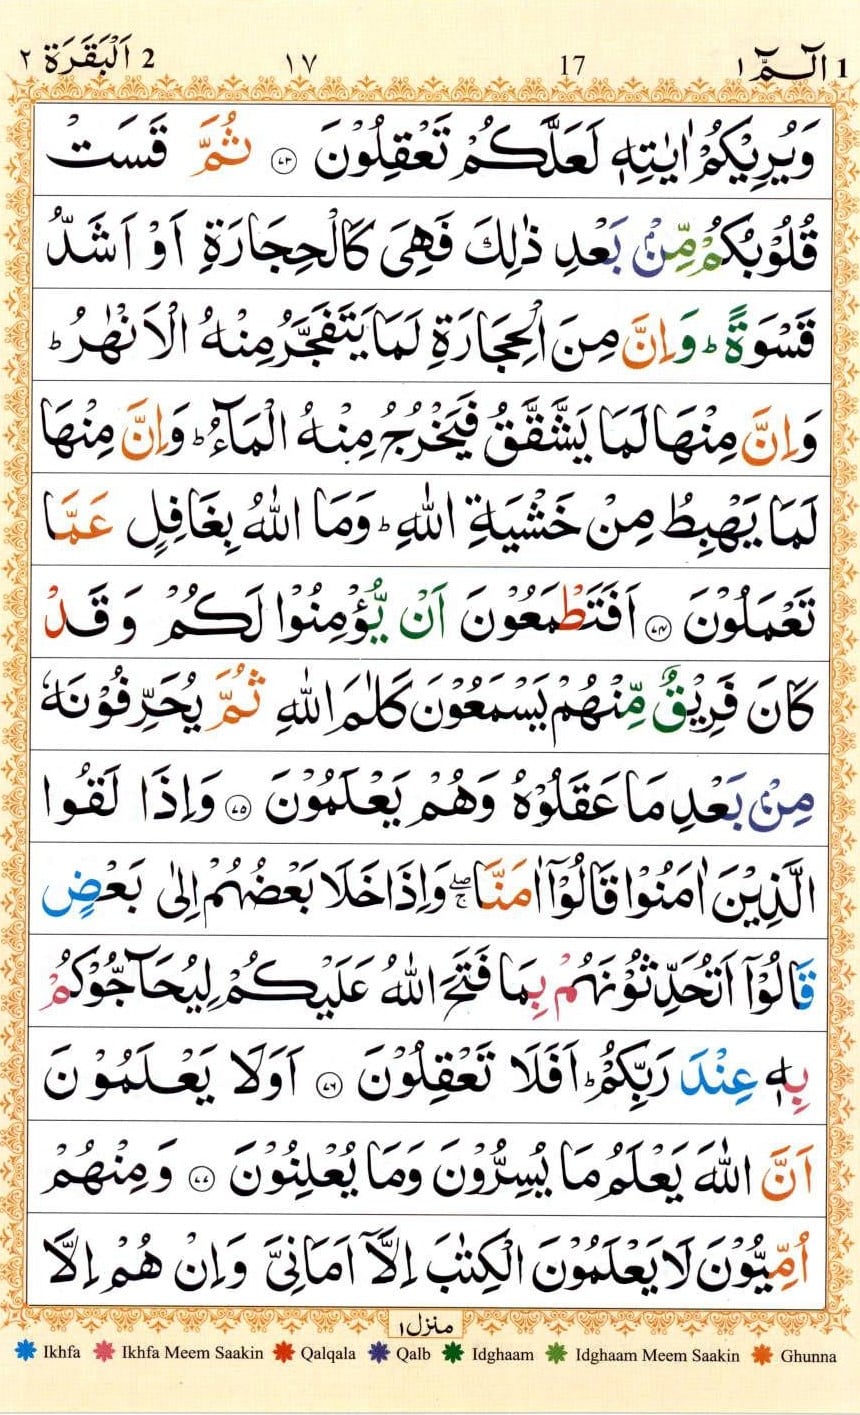 الٓـمّٓ ١ 1 17 ١٧ 2 اَلْبَقَرَة ٢
وَيُرِيْكُمْ اٰيٰتِهٖ لَعَلَّكُمْ تَعْقِلُوْنَ ٧٣ ثُمَّ قَسَتْ
قُلُوْبُكُمْ مِّنْۢ بَعْدِ ذٰلِكَ فَهِىَ كَالْحِجَارَةِ اَوْ اَشَدُّ
قَسْوَةً ؕ وَاِنَّ مِنَ الْحِجَارَةِ لَمَا يَتَفَجَّرُ مِنْهُ الْاَنْهٰرُ ؕ
وَاِنَّ مِنْهَا لَمَا يَشَّقَّقُ فَيَخْرُجُ مِنْهُ الْمَآءُ ؕ وَاِنَّ مِنْهَا
لَمَا يَهْبِطُ مِنْ خَشْيَةِ اللّٰهِ ؕ وَمَا اللّٰهُ بِغَافِلٍ عَمَّا
تَعْمَلُوْنَ ٧٤ اَفَتَطْمَعُوْنَ اَنْ يُّؤْمِنُوْا لَكُمْ وَقَدْ
كَانَ فَرِيْقٌ مِّنْهُمْ يَسْمَعُوْنَ كَلٰمَ اللّٰهِ ثُمَّ يُحَرِّفُوْنَهٗ
مِنْۢ بَعْدِ مَا عَقَلُوْهُ وَهُمْ يَعْلَمُوْنَ ٧٥ وَاِذَا لَقُوا
الَّذِيْنَ اٰمَنُوْا قَالُوْٓا اٰمَنَّا ۖۚ وَاِذَا خَلَا بَعْضُهُمْ اِلٰى بَعْضٍ
قَالُوْٓا اَتُحَدِّثُوْنَهُمْ بِمَا فَتَحَ اللّٰهُ عَلَيْكُمْ لِيُحَآجُّوْكُمْ
بِهٖ عِنْدَ رَبِّكُمْ ؕ اَفَلَا تَعْقِلُوْنَ ٧٦ اَوَلَا يَعْلَمُوْنَ
اَنَّ اللّٰهَ يَعْلَمُ مَا يُسِرُّوْنَ وَمَا يُعْلِنُوْنَ ٧٧ وَمِنْهُمْ
اُمِّيُّوْنَ لَا يَعْلَمُوْنَ الْكِتٰبَ اِلَّآ اَمَانِىَّ وَاِنْ هُمْ اِلَّا
منزل ١
Ikhfa Ikhfa Meem Saakin Qalqala Qalb Idghaam Idghaam Meem Saakin Ghunna